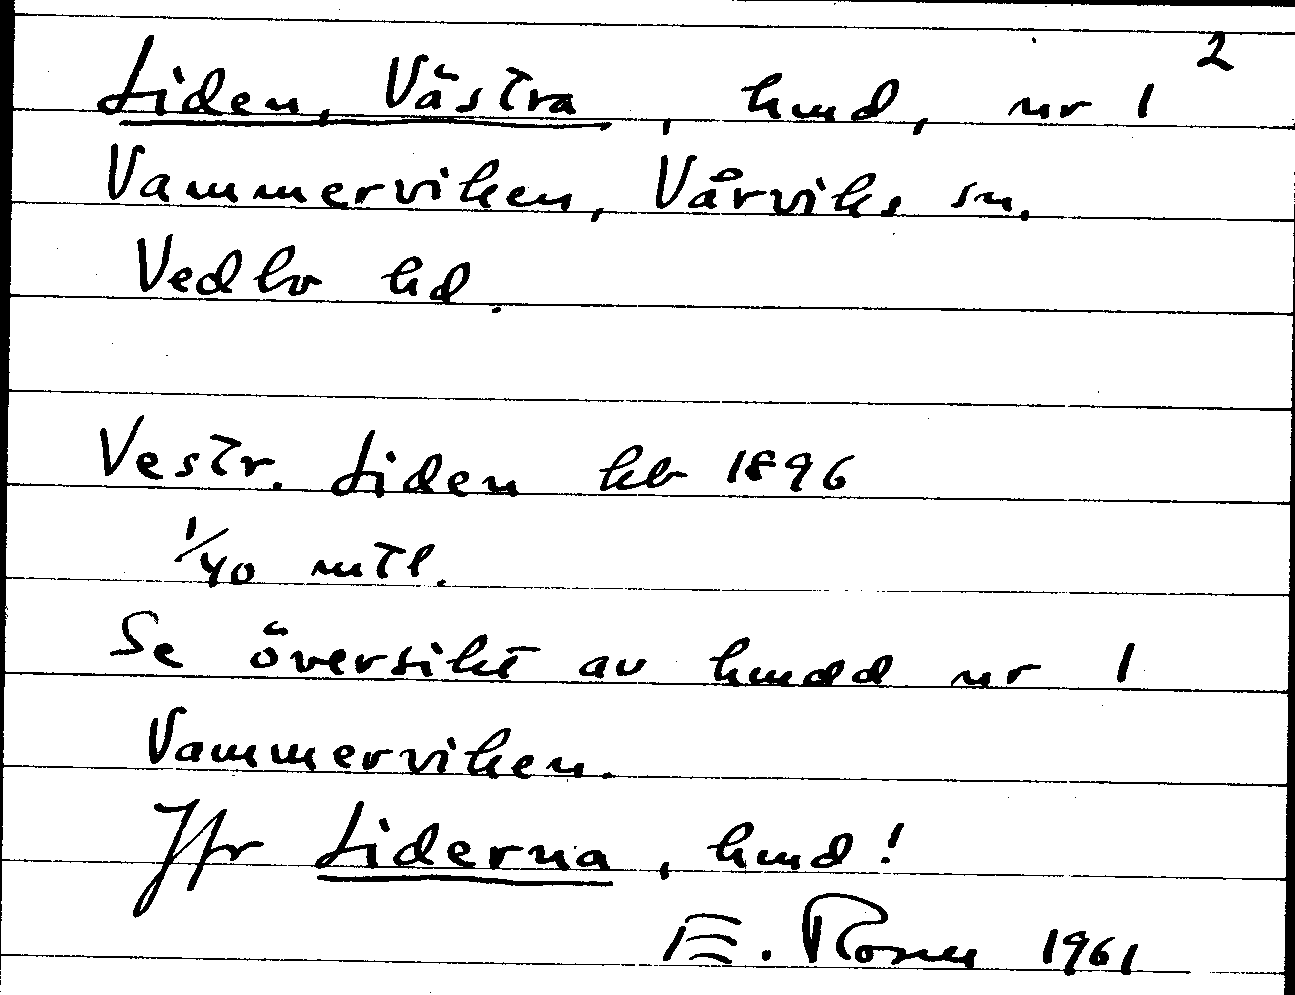 2
Liden, Västra, hmd, nr 1
Vammerviken, Vårviks sn.
Vedbo hd.
Vestr. Liden kb 1896
1/40 mtl.
Se översikt av hmdd nr 1
Vammerviken.
Jfr Liderna, hmd!
E. Rosell 1961